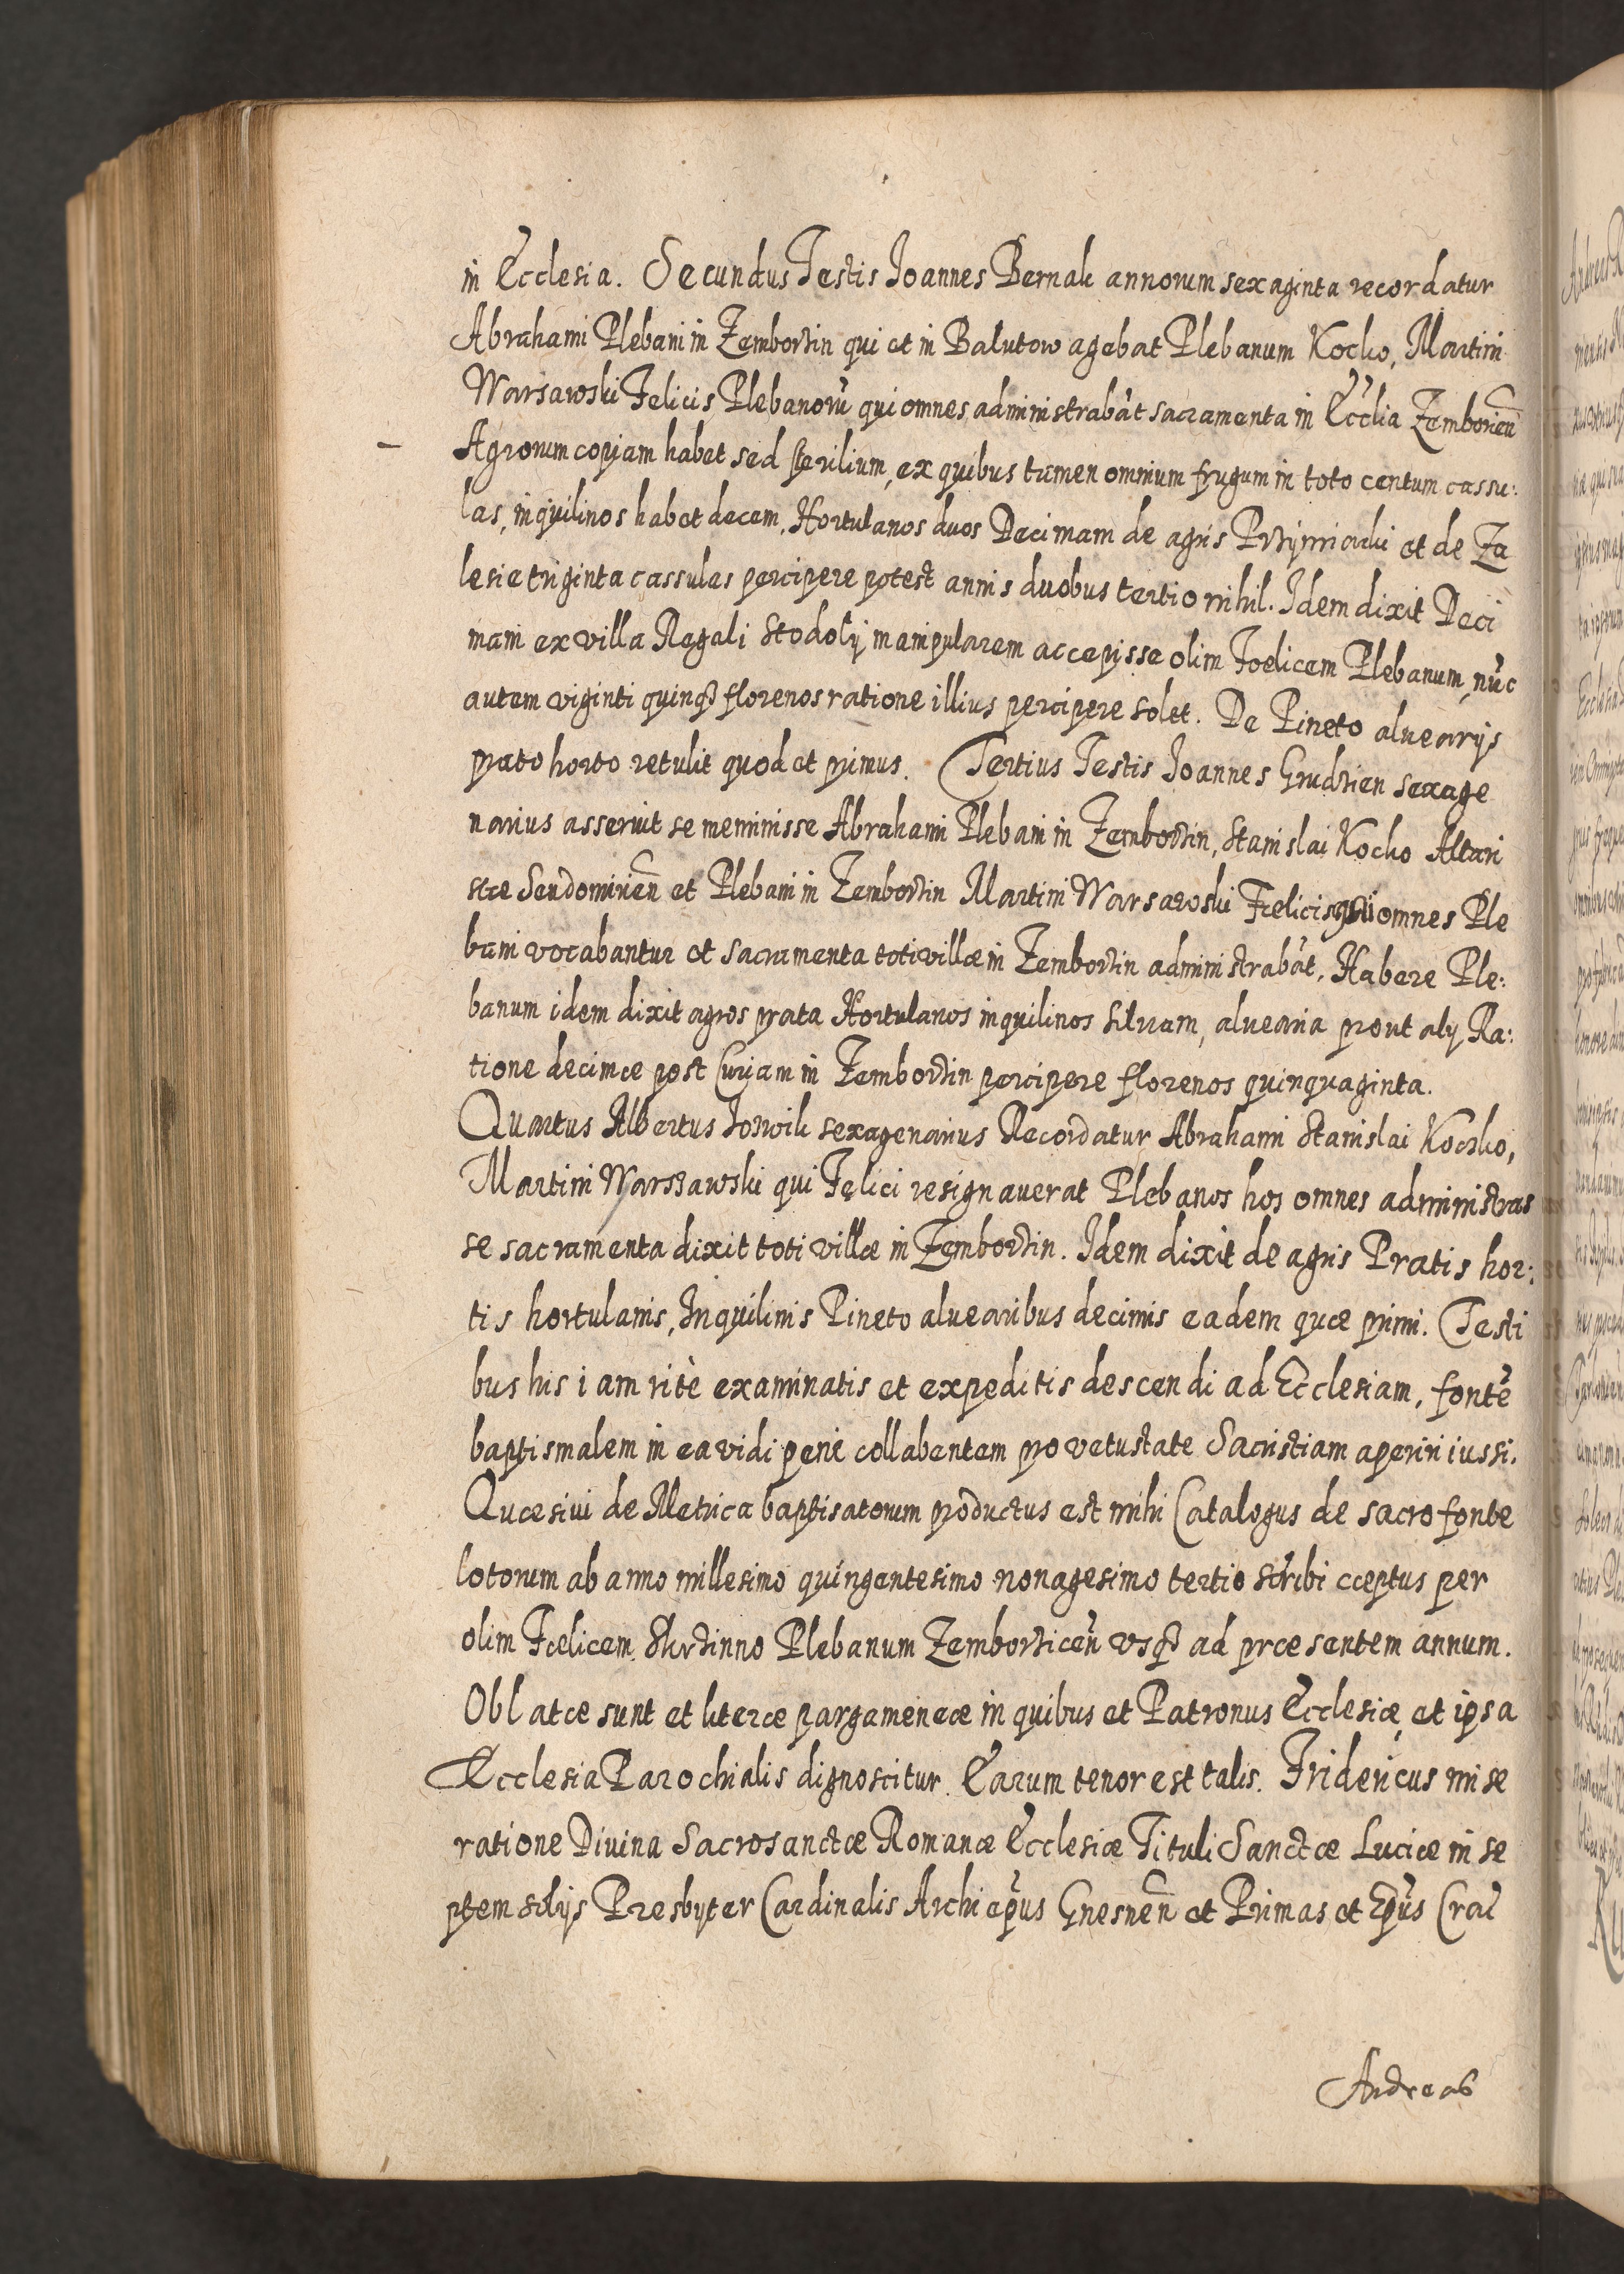 in Ecclesia. Secundus Testis Joannes Bernak annorum sexaginta recordatur
Abrahami Plebani in Zembortzin qui et in Balutow agebat Plebanum Kocko, Martini
Warsawski Felicis Plebanorũ qui omnes administrabãt sacramenta in Ecclia Zemborień
– Agrorum copiam habet sed sterilium, ex quibus tamen omnium frugum in toto centum cassu:
las, inquilinos habet decem, Hortulanos duos Decimam de agris et de Za
lesie triginta cassulas percipere potest annis duobus tertio nihil. Idem dixit Deci
mam ex villa Regali Stodoły manipularem accepisse olim Foelicem Plebanum, nũc
autem viginti quinq3 florenos ratione illius percipere solet. De Pineto aluearijs
prato horto retulit quod et primus. Tertius Testis Joannes Grudzien sexage
narius asseruit se meminisse Abrahami Plebani in Zembortzin, Stanislai Kocko Altari
stæ Sendomirień et Plebani in Zembortzin Martini Warsawski Fœlicis qui omnes Ple
bani vocabantur et sacramenta toti villæ in Zembortzin administrabãt. Habere Ple:
banum idem dixit agros prata Hortulanos inquilinos siluam, aluearia prout alij Ra:
tione decimæ post Curiam in Zembortzin percipere florenos quinquaginta.
Quartus Albertus sexagenarius Recordatur Abrahami Stanislai Koczko,
Martini Warszawski qui Fęlici resignauerat Plebanos hos omnes administras
se sacramenta dixit toti villæ in Zembortzin. Idem dixit de agris Pratis hor:
tis hortulanis, Inquilinis Pineto aluearibus decimis eadem quæ primi. Testi
bus his iam ritè examinatis et expeditis descendi ad Ecclesiam, fontẽ
baptismalem in ea vidi penè collabentem pro vetustate Sacristiam aperiri iussi.
Quæsiui de Metrica baptisatorum productus est mihi Catalogus de sacro fonte
lotorum ab anno millesimo quingentesimo nonagesimo tertio scribi cæptus per
olim Fœlicem Plebanum Zembortziceń vsq3 ad præsentem annum.
Oblatæ sunt et literæ pargameneæ in quibus et Patronus Ecclesiæ, et ipsa
Ecclesia Parochialis dignoscitur. Earum tenor est talis. Fridericus mise
ratione Diuina Sacrosanctæ Romanæ Ecclesiæ Tituli Sanctæ Luciæ in se
ptem solijs Presbyter Cardinalis Archiepũs Gnesneñ et Primas, et Epũs Crac̃
Andreas